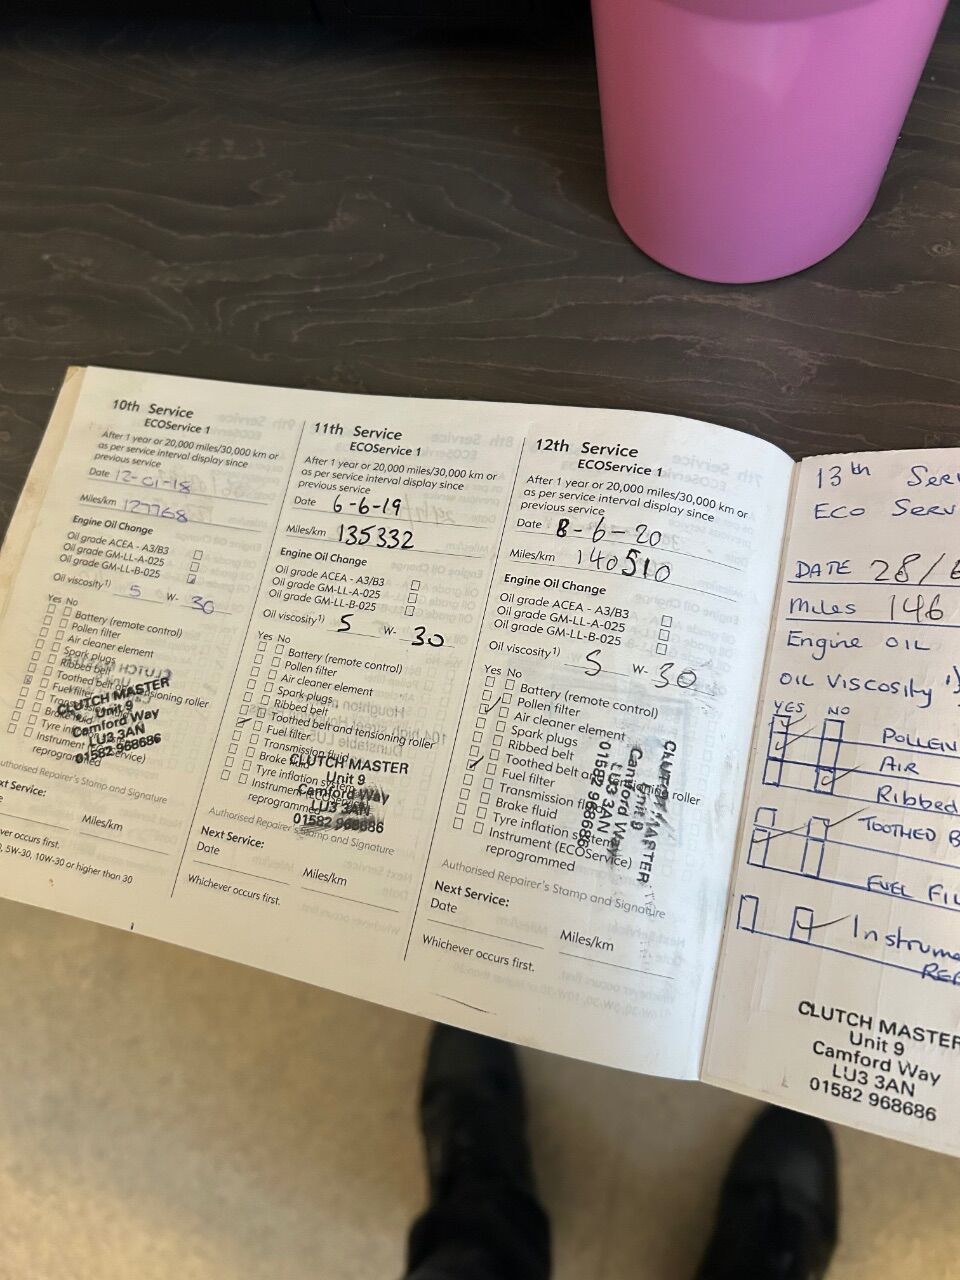 10th Service
ECOService 1
After 1 year or 20,000 miles/30,000 km or
as per service interval display since
previous service
Date 12-01-18
Miles/km 127768
Engine Oil Change
Oil grade ACEA - A3/B3
Oil grade GM-LL-A-025
Oil grade GM-LL-B-025
Oil viscosity1) 5 W- 30
Yes No
Battery (remote control)
Pollen filter
Air cleaner element
Spark plugs
Ribbed belt
Toothed belt tensioning roller
Fuel filter
Brake fluid
Tyre
Instrument Service)
reprogrammed
CLUTCH MASTER
Unit 9
Camford Way
LU3 3AN
01582 968686
Authorised Repairer's Stamp and Signature
Next Service:
Miles/km
Whichever occurs first.
5W-30, 10W-30 or higher than 30
11th Service
ECOService 1
After 1 year or 20,000 miles/30,000 km or
as per service interval display since
previous service
Date 6-6-19
Miles/km 135332
Engine Oil Change
Oil grade ACEA - A3/B3
Oil grade GM-LL-A-025
Oil grade GM-LL-B-025
Oil viscosity1) 5 W- 30
Yes No
Battery (remote control)
Pollen filter
Air cleaner element
Spark plugs
Ribbed belt
Toothed belt and tensioning roller
Fuel filter
Transmission fluid
Brake fluid
Tyre inflation
Instrument
reprogrammed
CLUTCH MASTER
Unit 9
Camford Way
LU3 3AN
01582 968686
Authorised Repairer's Stamp and Signature
Next Service:
Date
Miles/km
Whichever occurs first.
12th Service
ECOService 1
After 1 year or 20,000 miles/30,000 km or
as per service interval display since
previous service
Date 8-6-20
Miles/km 140510
Engine Oil Change
Oil grade ACEA - A3/B3
Oil grade GM-LL-A-025
Oil grade GM-LL-B-025
Oil viscosity1) 5 W- 30
Yes No
Battery (remote control)
Pollen filter
Air cleaner element
Spark plugs
Ribbed belt
Toothed belt and tensioning roller
Fuel filter
Transmission fluid
Brake fluid
Tyre inflation system
Instrument (ECOService)
reprogrammed
CLUTCH MASTER
Unit 9
Camford Way
LU3 3AN
01582 968686
Authorised Repairer's Stamp and Signature
Next Service:
Date
Miles/km
Whichever occurs first.
13th Serv
Eco Serv
DATE 28/6
Miles 146
Engine OIL
OIL VISCOSITY 1)
YES NO
POLLEN
AIR
Ribbed
TOOTHED B
FUEL FIL
Instrume
REP
CLUTCH MASTER
Unit 9
Camford Way
LU3 3AN
01582 968686